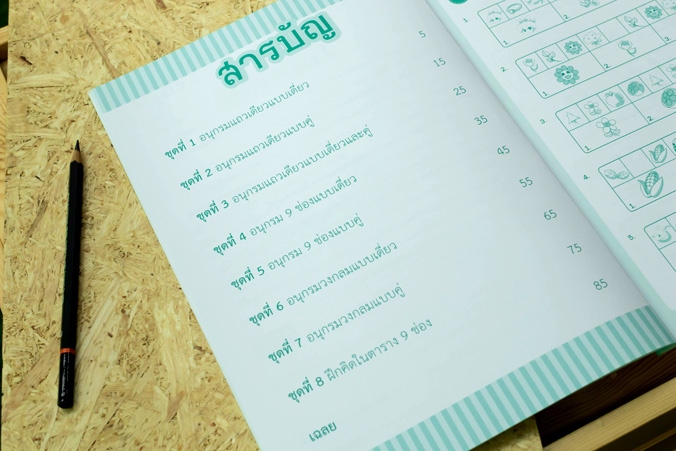 สารบัญ
ชุดที่ 1 อนุกรมแถวเดียวแบบเดี่ยว 5
ชุดที่ 2 อนุกรมแถวเดียวแบบคู่ 15
ชุดที่ 3 อนุกรมแถวเดียวแบบเดี่ยวและคู่ 25
ชุดที่ 4 อนุกรม 9 ช่องแบบเดี่ยว 35
ชุดที่ 5 อนุกรม 9 ช่องแบบคู่ 45
ชุดที่ 6 อนุกรมวงกลมแบบเดี่ยว 55
ชุดที่ 7 อนุกรมวงกลมแบบคู่ 65
ชุดที่ 8 ฝึกคิดในตาราง 9 ช่อง 75
เฉลย 85
1.
1. 2.
2.
1. 2.
3.
1. 2.
4.
1.
5.
1.